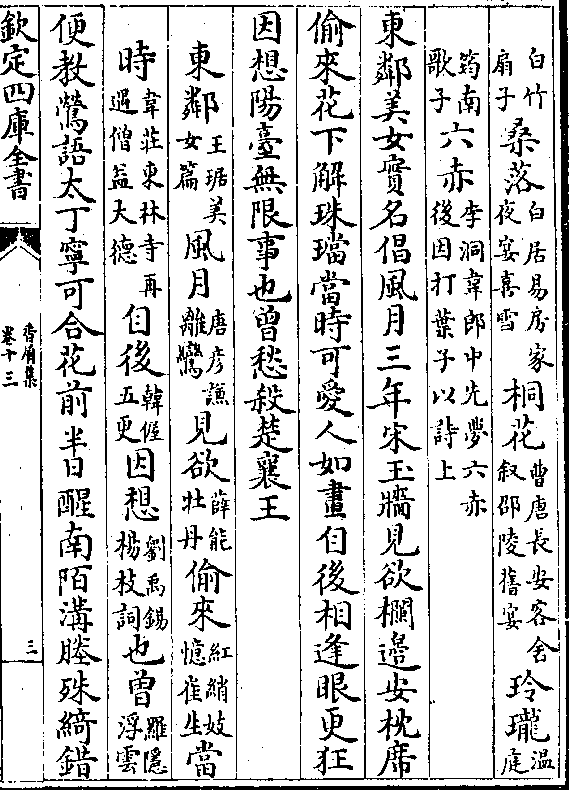 白竹扇子桑落白居易房家夜宴喜雪桐花曹唐長安客舍叙邵陵舊宴玲瓏温庭
筠南歌子六赤李洞韋郎中先夢六赤後因打葉子以詩上
東鄰美女實名倡風月三年宋玉牆見欲欄邉安枕席
偷來花下解珠璫當時可愛人如畫自後相逢眼更狂
因想陽臺無限事也曾愁殺楚襄王
東鄰王琚美女篇風月唐彦謙離鸞見欲薛能牡丹偷來紅綃妓憶崔生當
時韋莊東林寺再遇僧益大德自後韓偓五更因想劉禹錫楊枝詞也曾羅隱浮雲
便教鶯語太丁寧可合花前半日醒南陌溝塍殊綺錯
欽定四庫全書
香屑集
卷十三
三